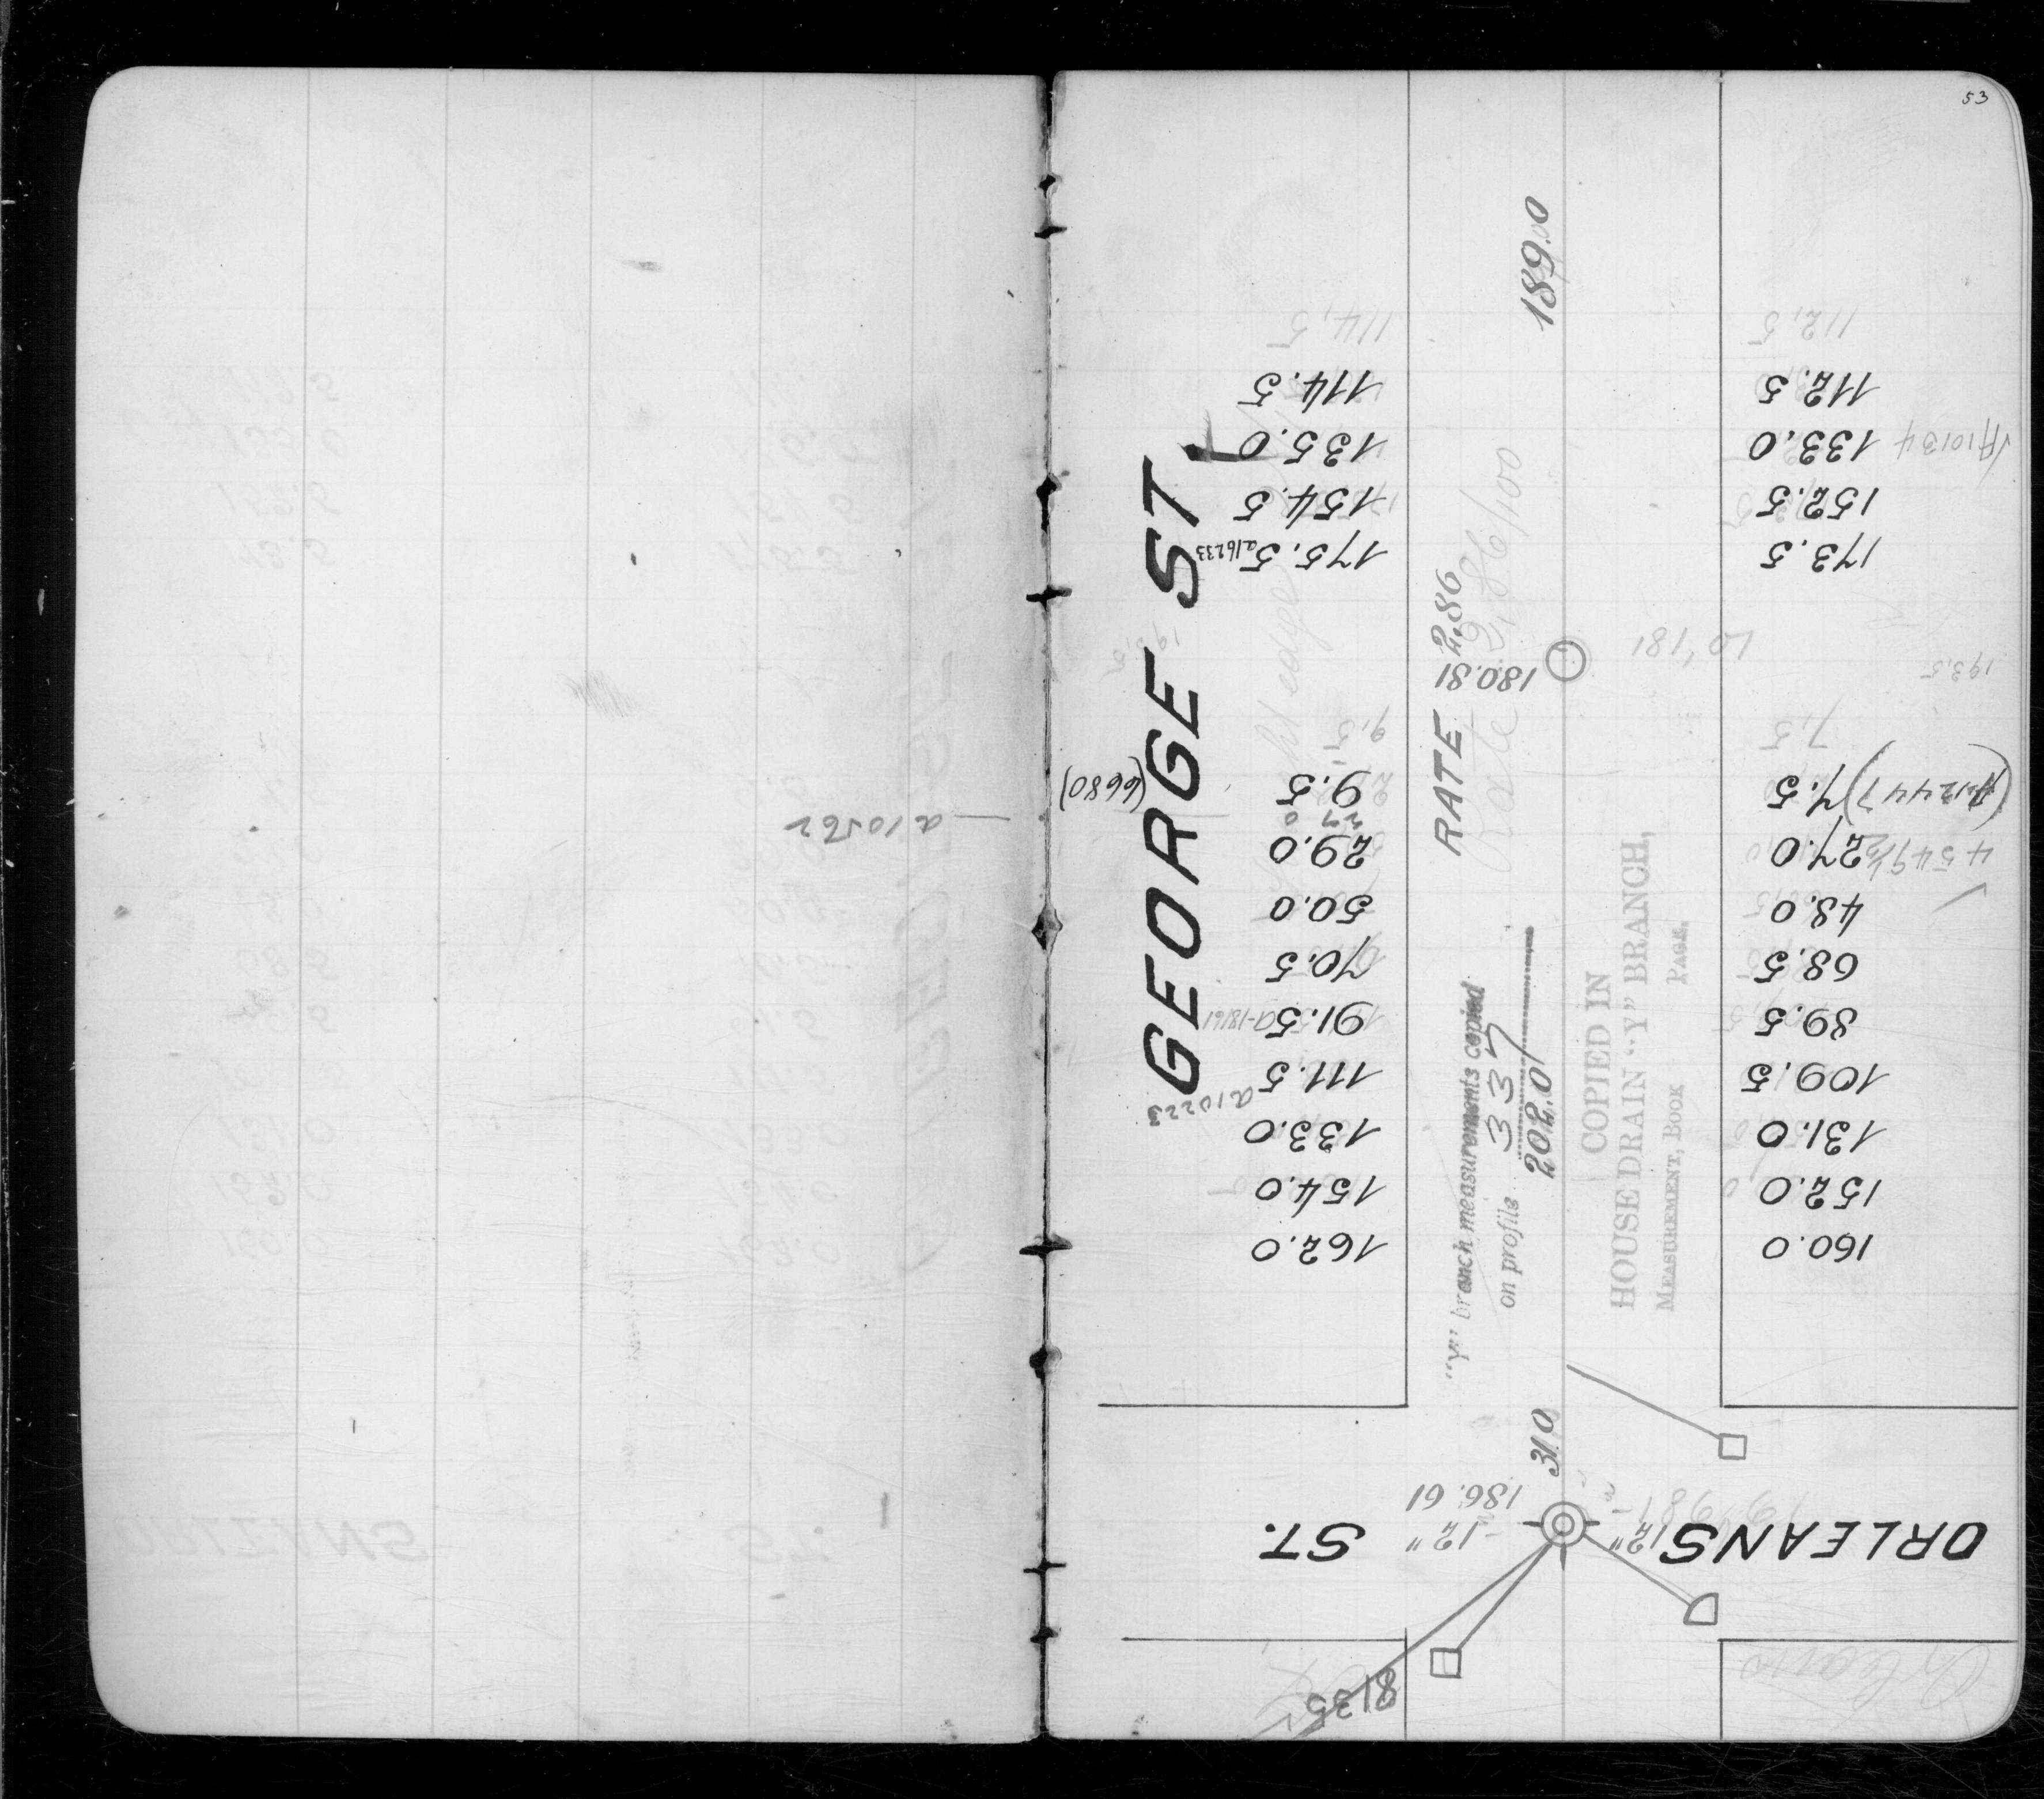 53
189.00
114.5
112.5
114.5
112.5
135.0
133.0
A10134
154.5
152.5
175.5
a16233
173.5
GEORGE ST.
RATE 2.86
Rate 2.86/100
180.81
181
193.5
9.5
7.5
(6680)
9.5
7.5
(A-12447)
27.0
29.0
27.0
a10562
50.0
48.0
70.5
68.5
91.5
a-18161
89.5
111.5
109.5
a10223
133.0
131.0
154.0
152.0
162.0
160.0
"Y" branch measurements copied
on profile 3337
202.0
COPIED IN
HOUSE DRAIN "Y" BRANCH,
MEASUREMENT, BOOK PAGE
31.0
186.61
12"
12"
ORLEANS ST.
Orleans
8135